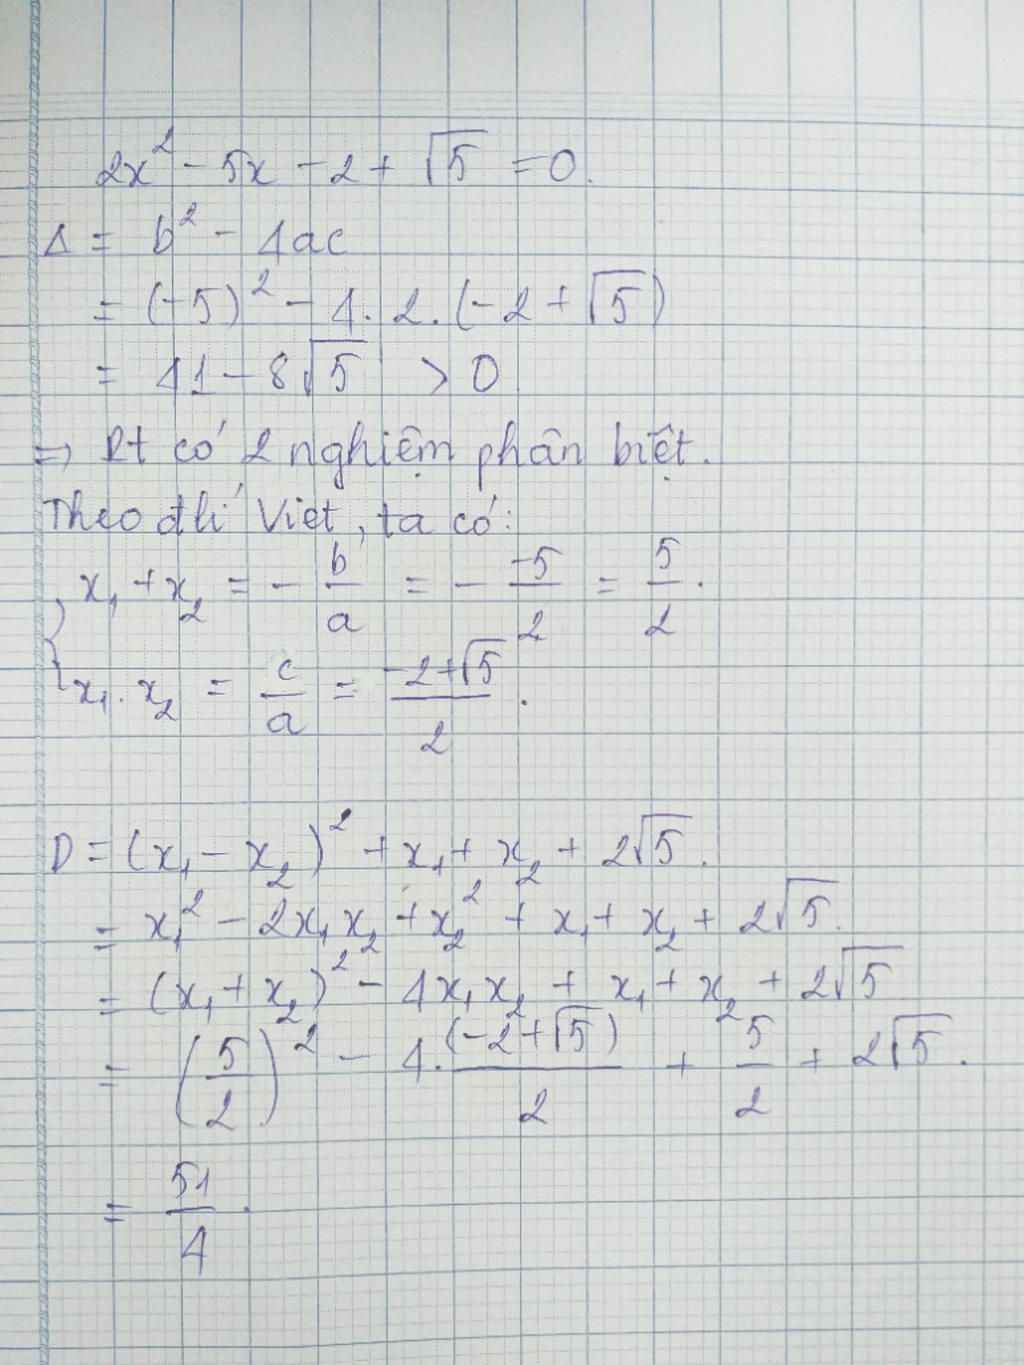 2x² - 5x - 2 + √5 = 0.
Δ = b² - 4ac
= (-5)² - 4. 2. (-2 + √5)
= 41 - 8√5 > 0
=> Pt có 2 nghiệm phân biệt.
Theo đlí Viét, ta có:
x₁ + x₂ = - b/a = - -5/2 = 5/2.
x₁. x₂ = c/a = -2+√5/2.
D = (x₁ - x₂)² + x₁ + x₂ + 2√5.
= x₁² - 2x₁x₂ + x₂² + x₁ + x₂ + 2√5.
= (x₁ + x₂)² - 4x₁x₂ + x₁ + x₂ + 2√5
= (5/2)² - 4. (-2+√5)/2 + 5/2 + 2√5.
= 51/4.